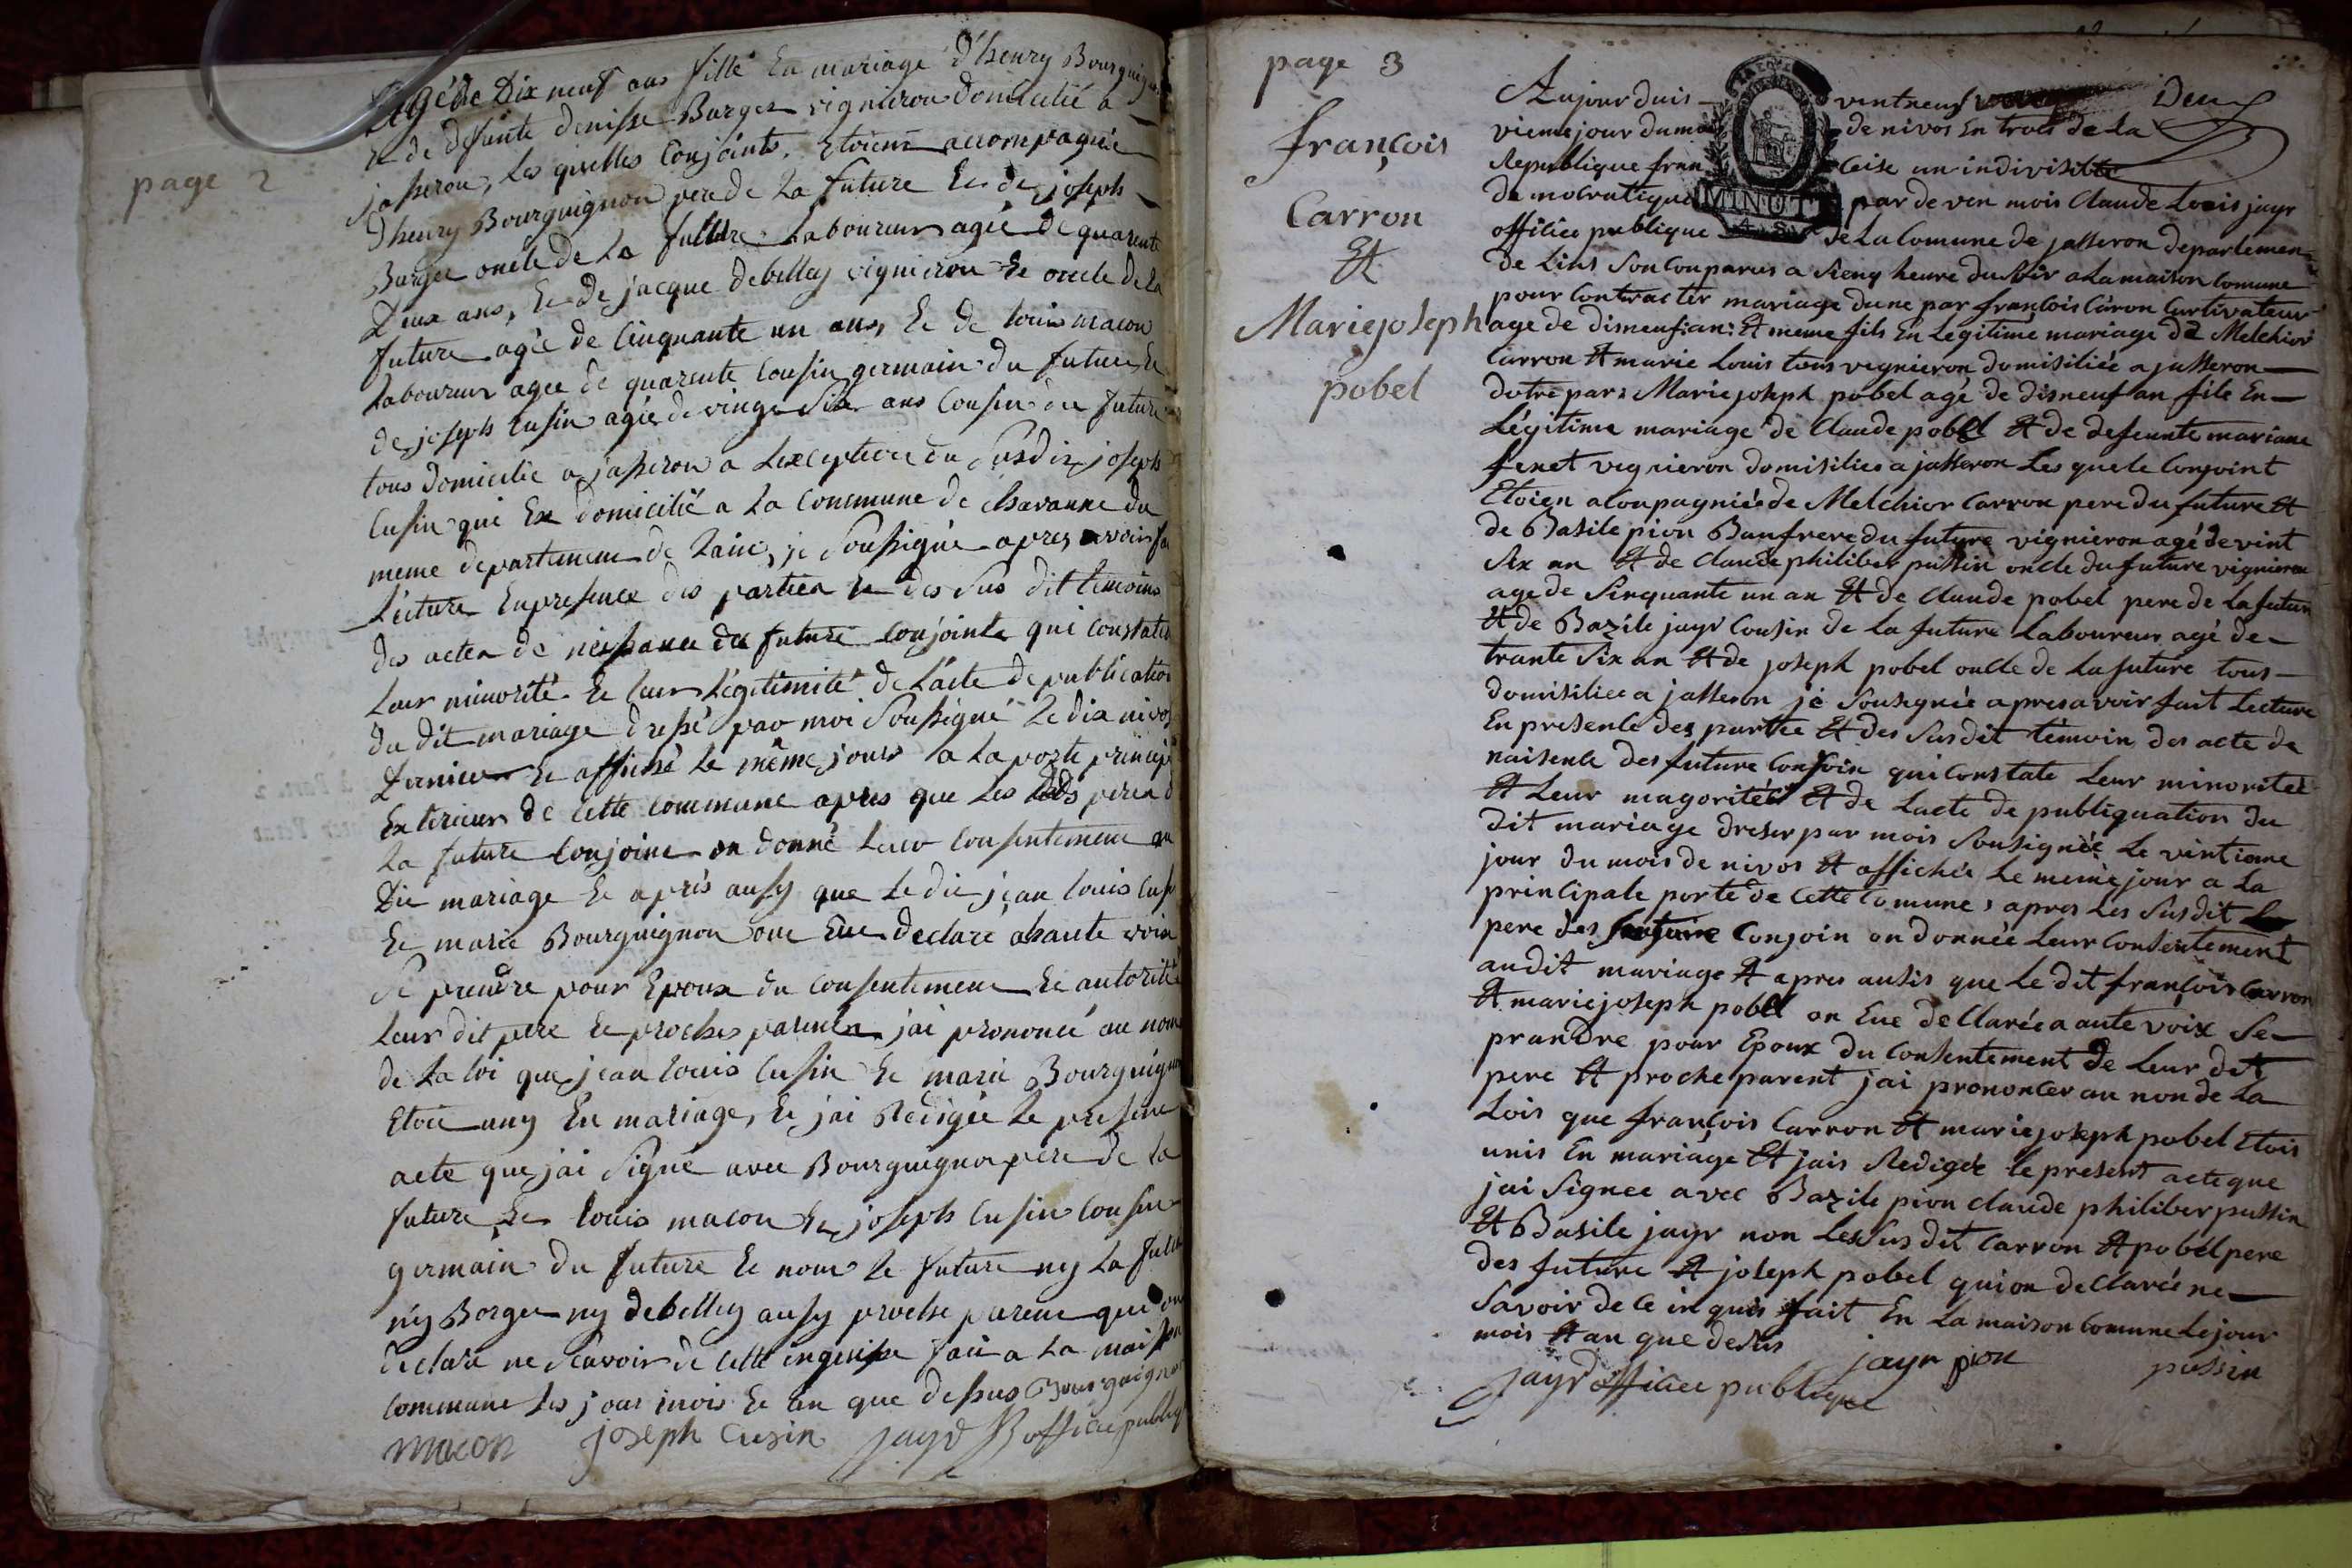 page 2
Agée de Dix neuf ans fille En mariage d'henry Bourguign
Et de defunte denisse Burger vignieron Domicilié a
jasseron, les quelles Conjoints, Etoient accompagnié
Dhenry Bourguignon pere de la future Et de joseph
Burger oncle de la future Laboureur agée de quarente
Deux ans, Et de jacque debelley vignieron Et oncle de la
future agée de Cinquante un ans, Et de louis macon
Laboureur agée de quarente Cousin germain du future Et
de joseph Cusin agée de vingt Six ans Cousin du future
tous Domicilie a jasseron a Lexception du Susdit joseph
Cusin qui Est domicilié a la Commune de Chavanne du
meme departement de Lain, je Soussigné apres avoir fa
Lecture En presence des parties Et des Sus dit temoins
des actes de neissance du future Conjointe qui Constate
Leur minorité Et leur Légitimité de Lacte de publication
du dit mariage dressé par moi Soussigné Le dix nivos
Dernier Et affiché Le même jour a La porte princip
Exterieur de Cette Commune apres que Les peres d
La future Conjoint on donné Leur Consentement au
Dit mariage Et après aussy que Le dit jean louis Cusi
Et marie Bourguignon ont Eut declaré ahaute voix
Se prendre pour Epoux du Consentement Et autorité
Leur dit pere Et proches parents jai prononcé au nom
de La loi que jean louis Cusin Et marie Bourguigno
Etoit uny En mariage, Et jai Redigée Le present
acte que jai Signé avec Bourguignon pere de la
future Et louis macon Et joseph Cusin Cousin
germain du future Et non le future ny La futu
ny Borger ny debelley aussy proche parent qui on
declaré ne Scavoir de Cette inquisse fait a La maison
commune Les jour mois Et an que dessus Bourguignon
macon joseph Cusin jayr officie public
page 3
françois
Carron
Et
Mariejoseph
pobel
Aujourduis vintneuf Deux
viemejour dumois de nivos En trois de la
Republique fran Ceise un indivisible
democratique par de ven mois Claude Louis jayr
officiee publique de La Comune de jasseron departemen
de Lins Son Conparus a Sienq heure du Soir a La maison Comune
pour Contracter mariage dune par françois Caron Curtivateur
age de dismeuf an: Et meme fils En Legitime mariage de Melchior
Carron Et marie Louis tous vegnieron domisiliée a jasseron
dotre par: Mariejoseph pobel agé de disneuf an file En
Légitime mariage de Claude pobel Et de defeunte mariane
feret vegnieron domisiliée a jasseron Les quele Conjoint
Etoien aCoupagniée de Melchior Carron pere du future Et
de Basile pion Baufrere du future vignieron agé de vint
Six an Et de Claude philiber pussin oncle du future vegnieron
age de Sinquante un an Et de Claude pobel pere de La futur
Et de Bazile jayr Cousin de La future Laboureur agé de
trante Six an Et de joseph pobel oncle de La future tous
domisiliee a jasseron je Sousegniée apres avoir fait Lecture
En presence des partie Et des Susdit témoin des acte de
naisence des future Conjoin qui Constate Leur minoritée
Et Leur magoritée Et de Lacte de publiquation du
dit mariage dreser par mois Sousigniée Le vintieme
jour du mois de nivos Et affichée Le meme jour a La
principale porte de Cette Comune, apres Les Susdit
pere des future Conjoin on donnée Leur Consentement
audit mariage Et apres ausis que Le dit françois Carron
Et mariejoseph pobel on Eue deClarée a aute voix Se
prandre pour Epoux du Consentement de Leur dit
pere Et proche parent jai prononcer au non de La
Lois que françois Carron Et mariejoseph pobel Etois
unis En mariage Et jais Redigée le present acte que
jai Signee avec Bazile pion claude philiber pussin
Et Basile jayr non Les Sus dit Carron Et pobel pere
des future Et joseph pobel qui on declarée ne
Savoir de Ce in quis fait En La maison Comune Le jour
mois Et an que desus
jayr pion pussin
jayr officiee publique
MINUT